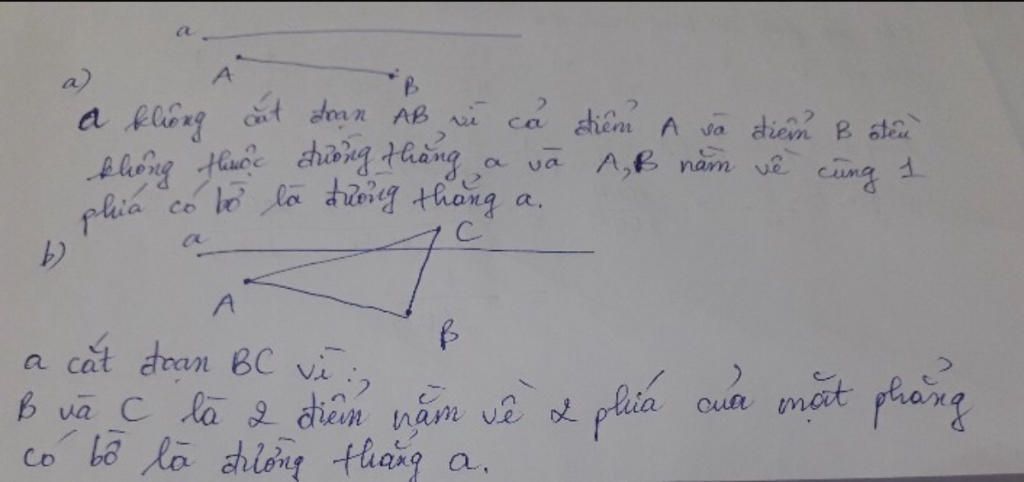 a
A
B
a)
a không cắt đoạn AB vì cả điểm A và điểm B đều
không thuộc đường thẳng a và A, B nằm về cùng 1
phía có bờ là đường thẳng a.
b)
a
C
A
B
a cắt đoạn BC vì:
B và C là 2 điểm nằm về 2 phía của mặt phẳng
có bờ là đường thẳng a.